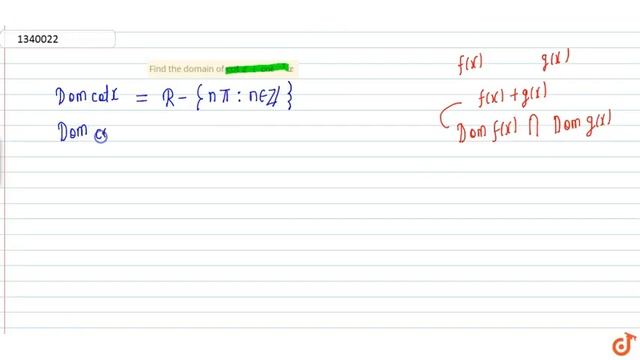 1340022
Find the domain of
Dom cot x = R - { nπ : n∈Z }
Dom
f(x) g(x)
f(x) + g(x)
Dom f(x) ∩ Dom g(x)